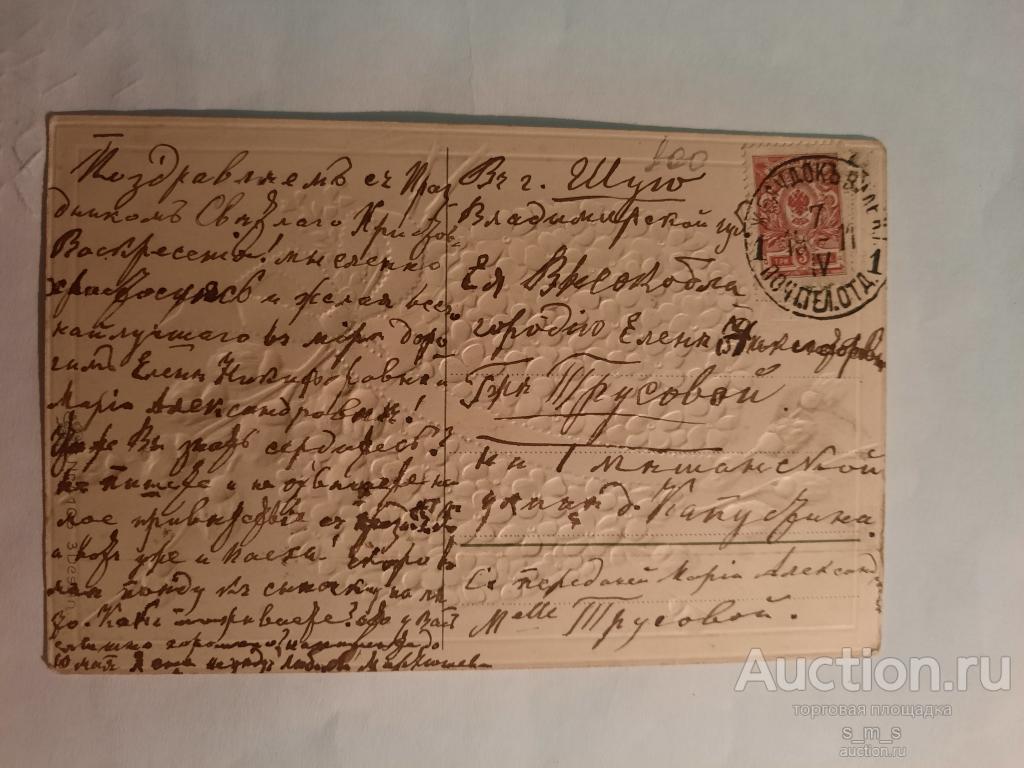 Поздравляемъ съ Праз
дникомъ Свѣтлаго Христов
Воскресенія! мысленно
христосуюсь и желая всего
найлучшаго въ мірѣ доро
гимъ Еленѣ Никифоровнѣ и
Маріи Александровнѣ!
Вы знать сердитесь?
не пишете и не отвѣчаете на
мое привѣтствіе съ
а вотъ уже и Пасха! скоро въ
маѣ поѣду къ сыночку на лѣ
то. Какъ поживаете? что у Васъ
слышно хорошаго
10 мая.
Въ г. Шую
Владимирской губ
Ея Высокобла
городію Еленѣ Никифоровн
Гжѣ Трусовой.
на 1 Мѣщанской
улицѣ д. Капустина.
Съ передачей Маріи Александ
Melle Трусовой.
400
7
IV
1
1
ПОЧ.ТЕЛ.ОТД.
3
Auction.ru
торговая площадка
s_m_s
auction.ru